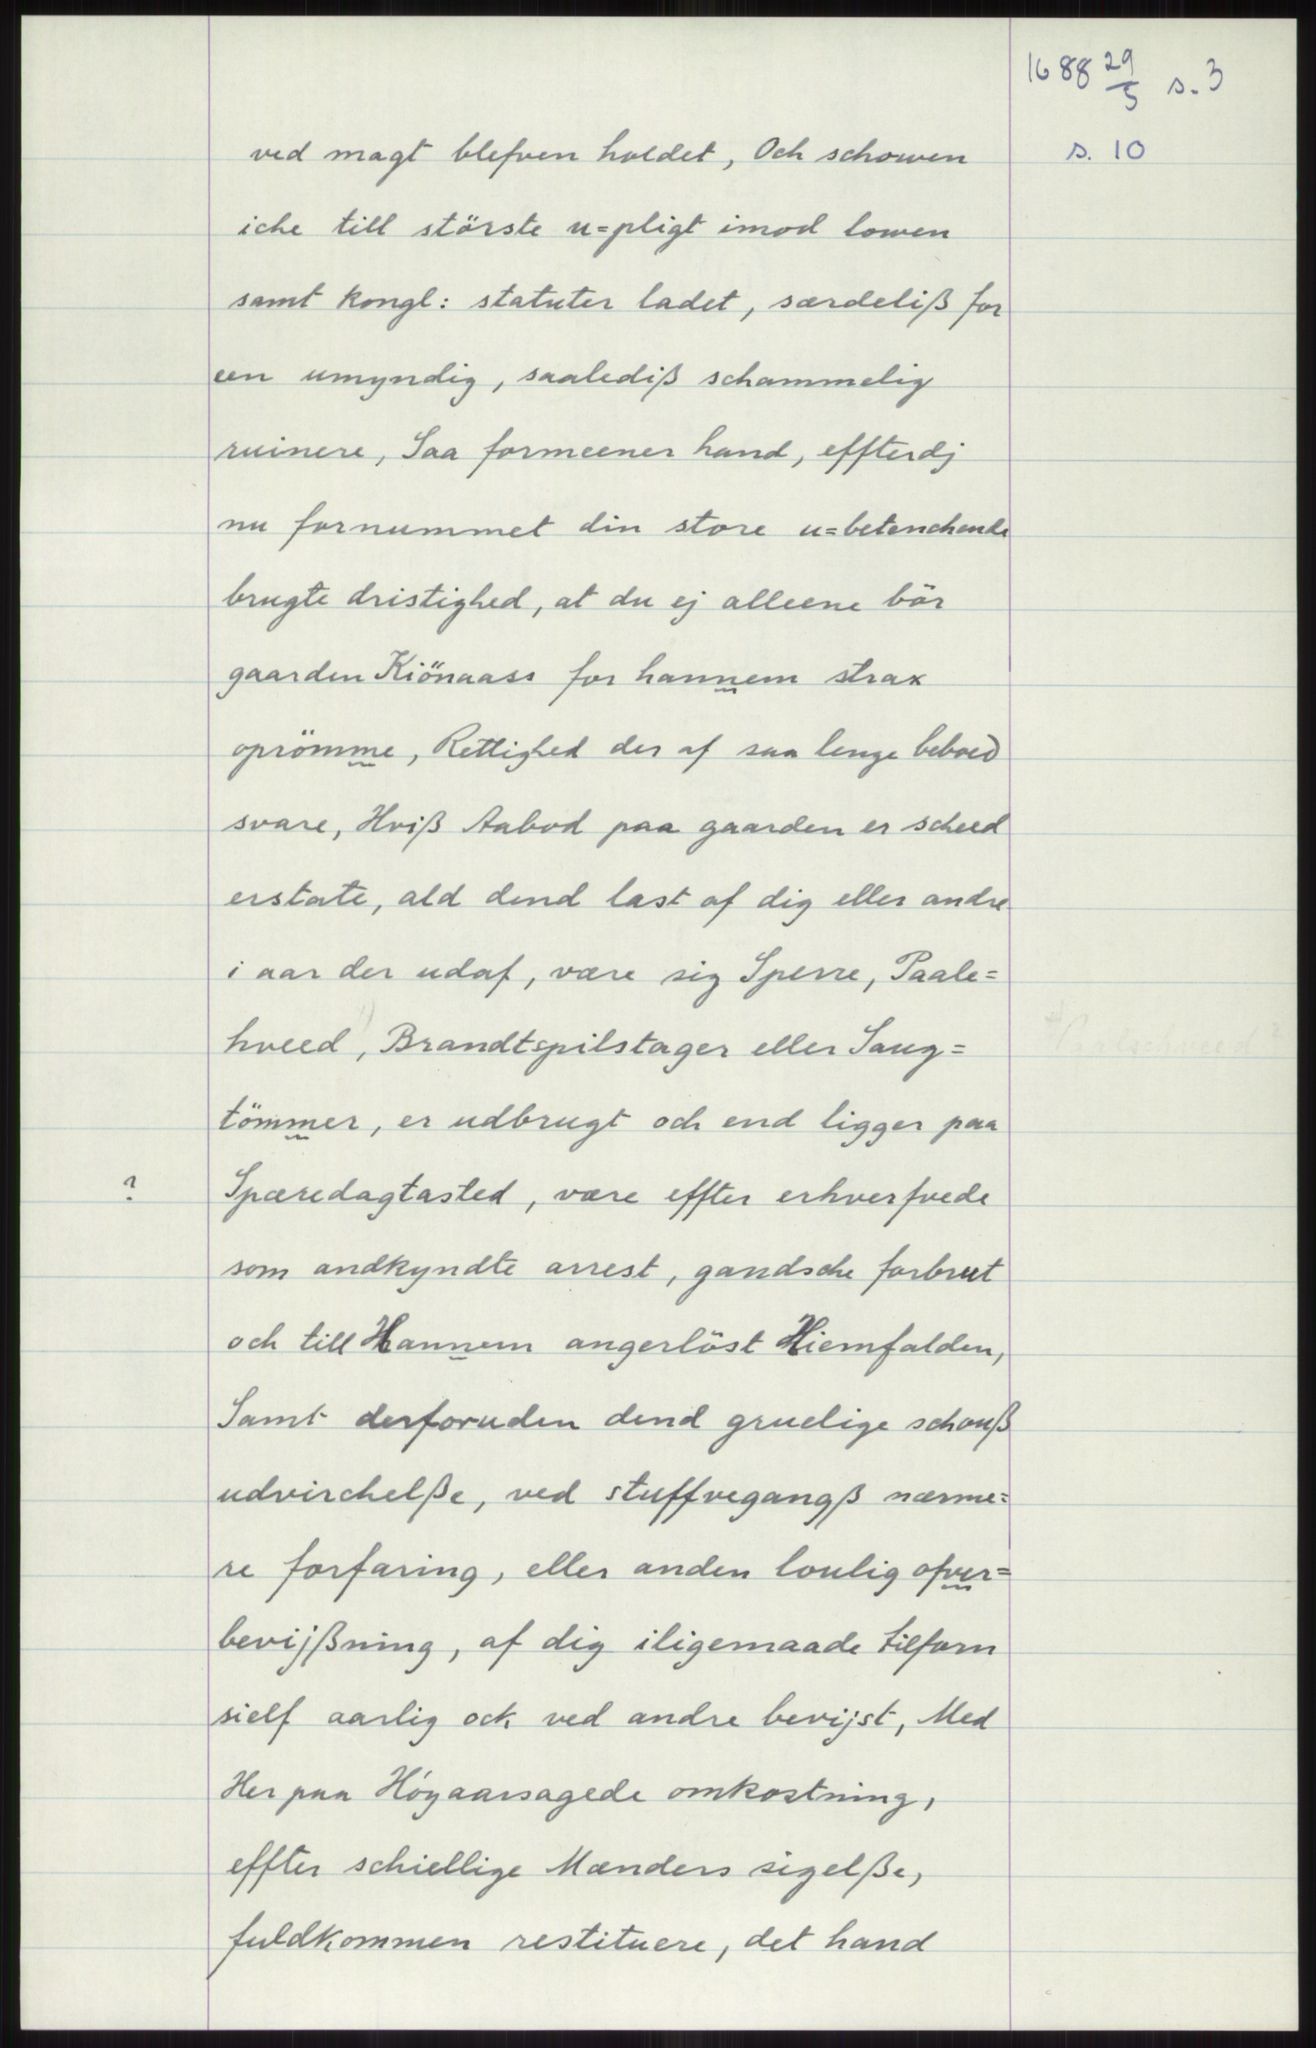 1688 29/5 s. 3
s. 10
ved magt blefven holdet, Och schowen
iche till störste u=pligt imod lowen
samt kongl: statuter ladet, særdeliß for
een umyndig, saalediß schammelig
ruinere, Saa formeener hand, effterdj
nu fornummet din store u=betenchende
brugte dristighed, at du ej alleene bör
gaarden Kiönaass for hannem strax
oprömme, Rettighed der af saa lenge beboed
svare, Hviß Aabod paa gaarden er scheed
erstate, ald dend last af dig eller andre
i aar der udaf, være sig Sperre, Paale=
hveed, Brandtspilstager eller Saug=
tömmer, er udbrugt och end ligger paa
? Spæredagtasted, være effter erhverfvede
som andkyndte arrest, gandsche forbrut
och till Hannem angerlöst Hiemfalden,
Samt desforuden dend gruelige schouß
udvirchelße, ved stuffvegangß nærme=
re forfaring, eller anden loulig ofver=
bevijßning, af dig iligemaade tilforn
sielf aarlig och ved andre bevijst, Med
Her paa Höyaarsagede omkostning,
effter schiellige Mænders sigelße,
fuldkommen restituere, det hand